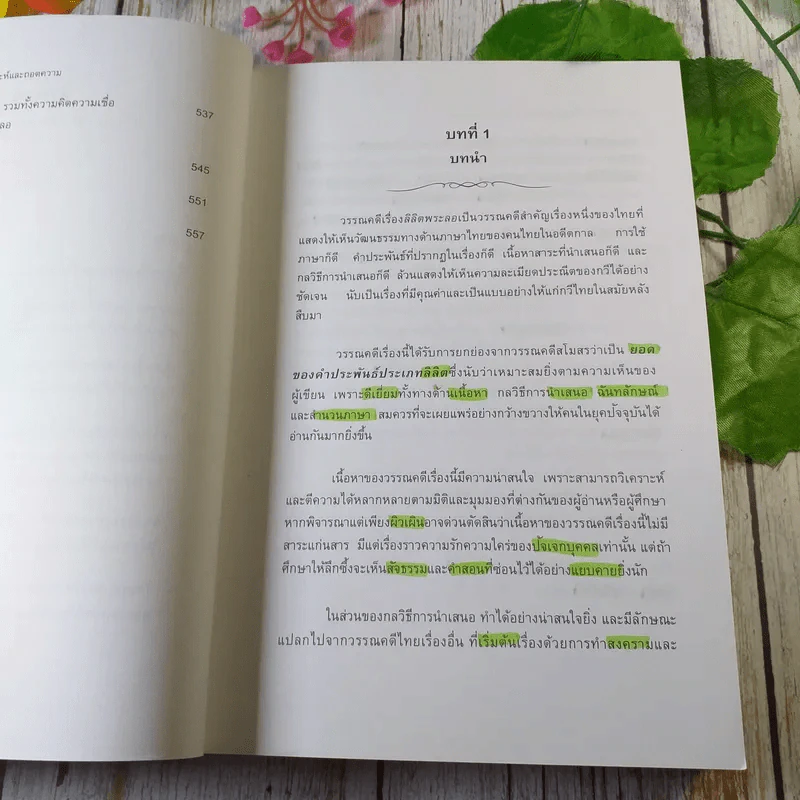 ะห์และถอดความ
รวมทั้งความคิดความเชื่อ
ลอ
537
545
551
557
บทที่ 1
บทนำ
วรรณคดีเรื่องลิลิตพระลอเป็นวรรณคดีสำคัญเรื่องหนึ่งของไทยที่
แสดงให้เห็นวัฒนธรรมทางด้านภาษาไทยของคนไทยในอดีตกาล การใช้
ภาษาก็ดี คำประพันธ์ที่ปรากฏในเรื่องก็ดี เนื้อหาสาระที่นำเสนอก็ดี และ
กลวิธีการนำเสนอก็ดี ล้วนแสดงให้เห็นความละเมียดประณีตของกวีได้อย่าง
ชัดเจน นับเป็นเรื่องที่มีคุณค่าและเป็นแบบอย่างให้แก่กวีไทยในสมัยหลัง
สืบมา
วรรณคดีเรื่องนี้ได้รับการยกย่องจากวรรณคดีสโมสรว่าเป็น ยอด
ของคำประพันธ์ประเภทลิลิตซึ่งนับว่าเหมาะสมยิ่งตามความเห็นของ
ผู้เขียน เพราะดีเยี่ยมทั้งทางด้านเนื้อหา กลวิธีการนำเสนอ ฉันทลักษณ์
และสำนวนภาษา สมควรที่จะเผยแพร่อย่างกว้างขวางให้คนในยุคปัจจุบันได้
อ่านกันมากยิ่งขึ้น
เนื้อหาของวรรณคดีเรื่องนี้มีความน่าสนใจ เพราะสามารถวิเคราะห์
และตีความได้หลากหลายตามมิติและมุมมองที่ต่างกันของผู้อ่านหรือผู้ศึกษา
หากพิจารณาแต่เพียงผิวเผินอาจด่วนตัดสินว่าเนื้อหาของวรรณคดีเรื่องนี้ไม่มี
สาระแก่นสาร มีแต่เรื่องราวความรักความใคร่ของปัจเจกบุคคลเท่านั้น แต่ถ้า
ศึกษาให้ลึกซึ้งจะเห็นสัจธรรมและคำสอนที่ซ่อนไว้ได้อย่างแยบคายยิ่งนัก
ในส่วนของกลวิธีการนำเสนอ ทำได้อย่างน่าสนใจยิ่ง และมีลักษณะ
แปลกไปจากวรรณคดีไทยเรื่องอื่น ที่เริ่มต้นเรื่องด้วยการทำสงครามและ